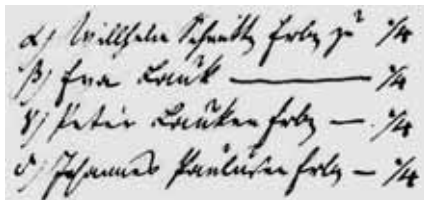 α) Willhelm Schmitt Erben zu 1/4
β) Eva Lauk — 1/4
γ) Peter Lauken Erben — 1/4
δ) Johannes Paulusen Erben — 1/4